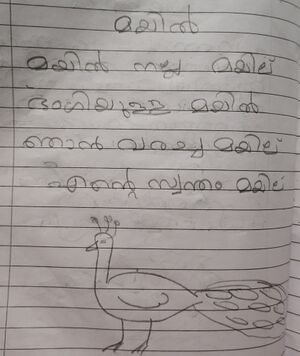 മയിൽ
മയിൽ നല്ല മയില്
ഭംഗിയുള്ള മയിൽ
ഞാൻ വരച്ച മയില്
എന്റെ സ്വന്തം മയില്